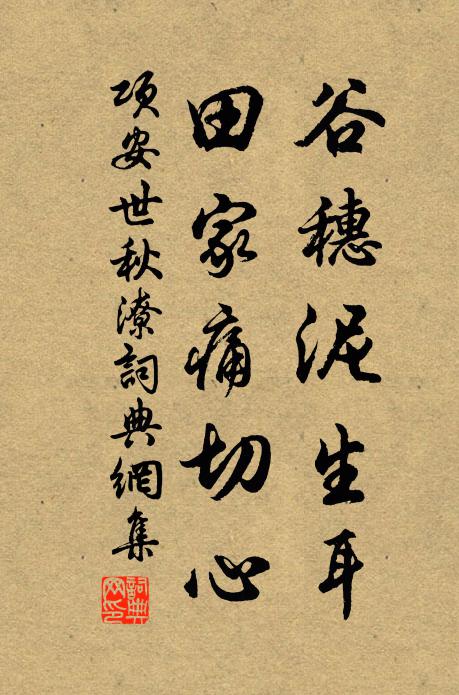 谷穗泥生耳
田家痛切心
项安世秋潦詞典網集
詞典网印